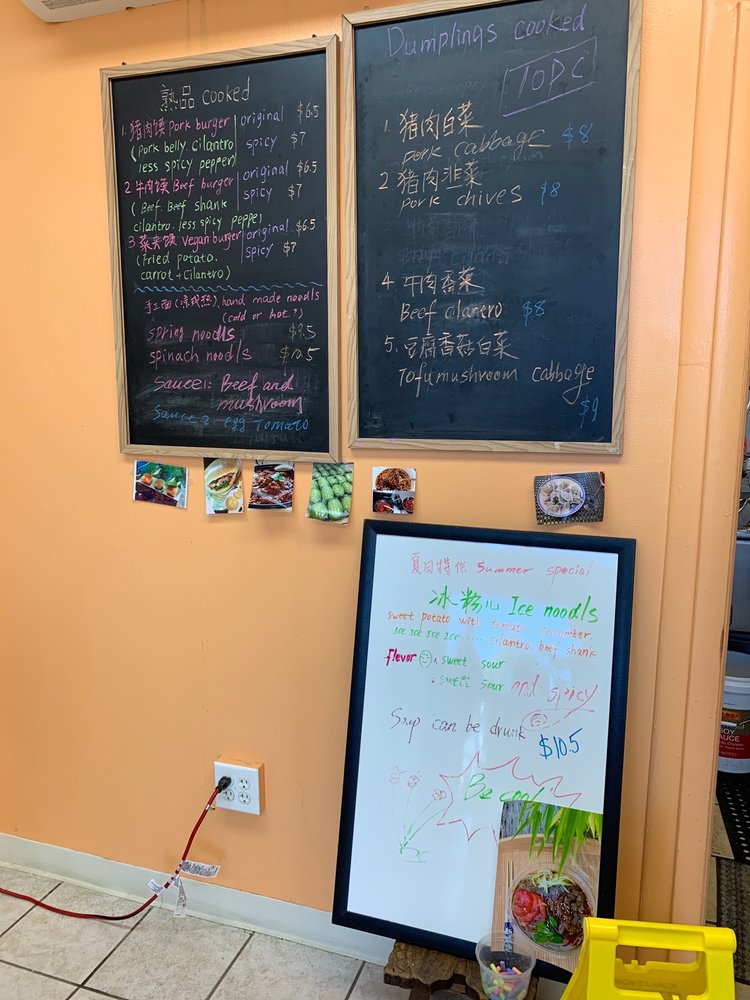 熟品 cooked
1. 猪肉馍 pork burger original $6.5
(pork belly. cilantro spicy $7
less spicy pepper)
2 牛肉馍 Beef burger original $6.5
( Beef. Beef shank spicy $7
cilantro. less spicy pepper
3 菜夹馍 vegan burger original $6.5
(Fried potato. spicy $7
carrot + cilantro)
手工面 hand made noodls
(cold or hot.?)
spring noodls $9.5
spinach noodls $10.5
sauce1: Beef and
mushroom
Sauce 2 egg Tomato
Dumplings cooked
TOPC
1. 猪肉白菜
pork cabbage $8
2 猪肉韭菜
pork chives $8
4 牛肉香菜
Beef cilantro $8
5. 豆腐香菇白菜
Tofu mushroom cabbage
$9
夏日特供 Summer special
冰粉儿 Ice noodls
sweet potato with tomato. cucumber.
ICE ICE ICE ICE ...... cilantro. beef shank
flevor . sweet sour
. sweet sour and spicy
Soup can be drunk
$10.5
Be cool
SOY
SAUCE
CAUTION